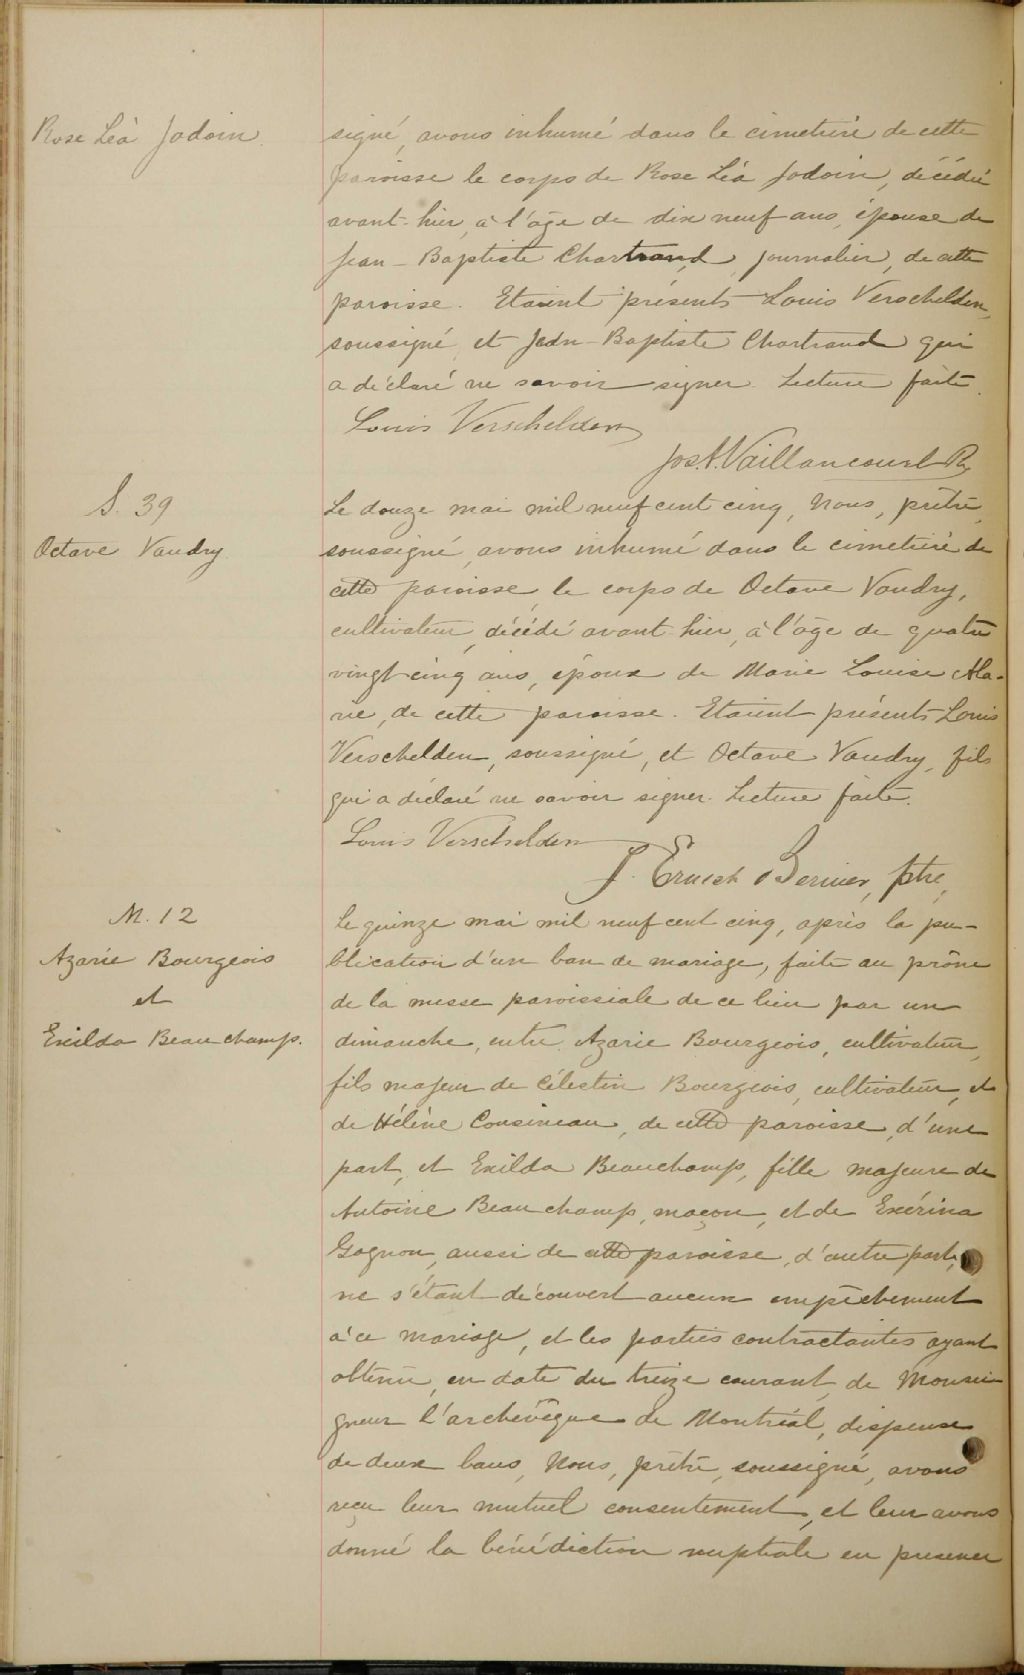 Rose Léa Jodoin
signé, avons inhumé dans le cimetière de cette
paroisse le corps de Rose Léa Jodoin, décédée
avant-hier, à l'âge de dix neuf ans, épouse de
Jean-Baptiste Chartrand, journalier, de cette
paroisse. Etaient présents Louis Verschelden,
soussigné, et Jean-Baptiste Chartrand qui
a déclaré ne savoir signer. Lecture faite.
Louis Verschelden
Jos. A. Vaillancourt Ptre
S. 39
Octave Vaudry
Le douze mai mil neuf cent cinq, Nous, prêtre,
soussigné, avons inhumé dans le cimetière de
cette paroisse, le corps de Octave Vaudry,
cultivateur, décédé avant-hier, à l'âge de quatre
vingt-cinq ans, époux de Marie Louise Ala-
rie, de cette paroisse. Etaient présents Louis
Verschelden, soussigné, et Octave Vaudry, fils
qui a déclaré ne savoir signer. Lecture faite.
Louis Verschelden
J. Ernest Bernier, ptre,
M. 12
Azarie Bourgeois
et
Exilda Beauchamp.
Le quinze mai mil neuf cent cinq, après la pu-
blication d'un ban de mariage, faite au prône
de la messe paroissiale de ce lieu par un
dimanche, entre Azarie Bourgeois, cultivateur,
fils majeur de Célestin Bourgeois, cultivateur, et
de Hélène Cousineau, de cette paroisse, d'une
part, et Exilda Beauchamp, fille majeure de
Antoine Beauchamp, maçon, et de Exérina
Gagnon, aussi de cette paroisse, d'autre part,
ne s'étant découvert aucun empêchement
à ce mariage, et les parties contractantes ayant
obtenu, en date du treize courant, de Monsei-
gneur l'archevêque de Montréal, dispense
de deux bans, Nous, prêtre, soussigné, avons
reçu leur mutuel consentement, et leur avons
donné la bénédiction nuptiale en presence